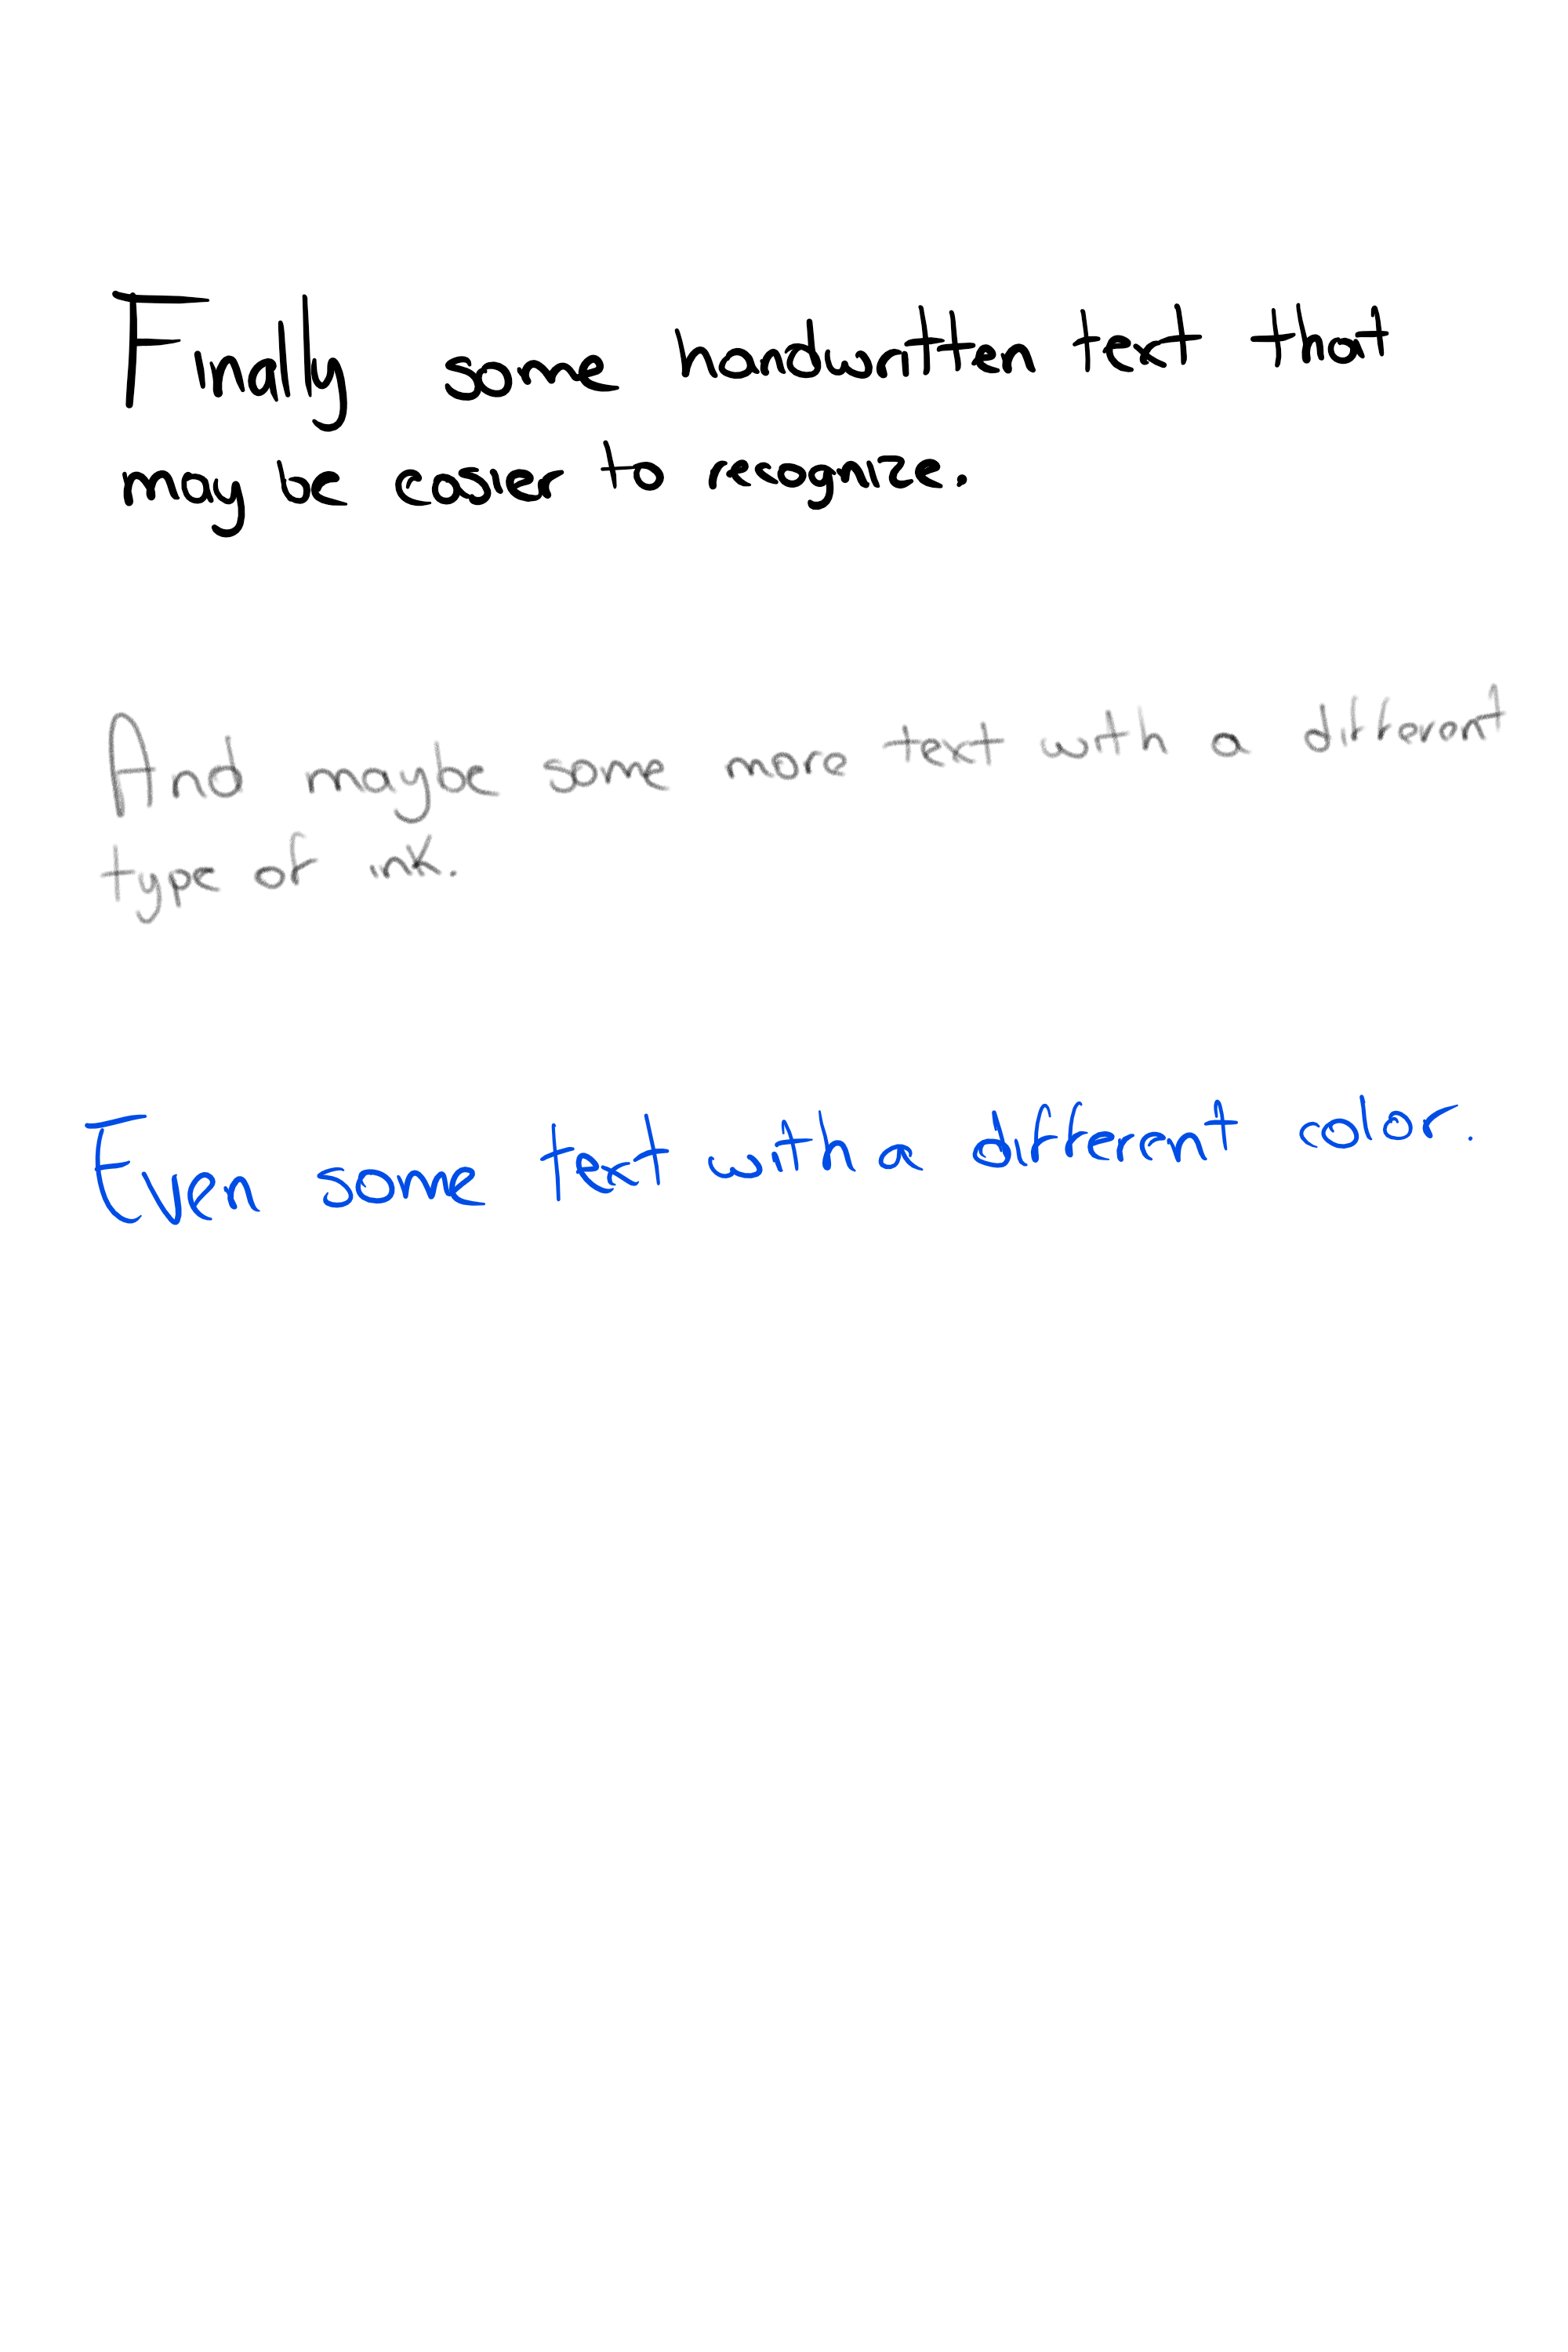 Finally some handwritten text that
may be easier to recognize.
And maybe some more text with a different
type of ink.
Even some text with a different color.